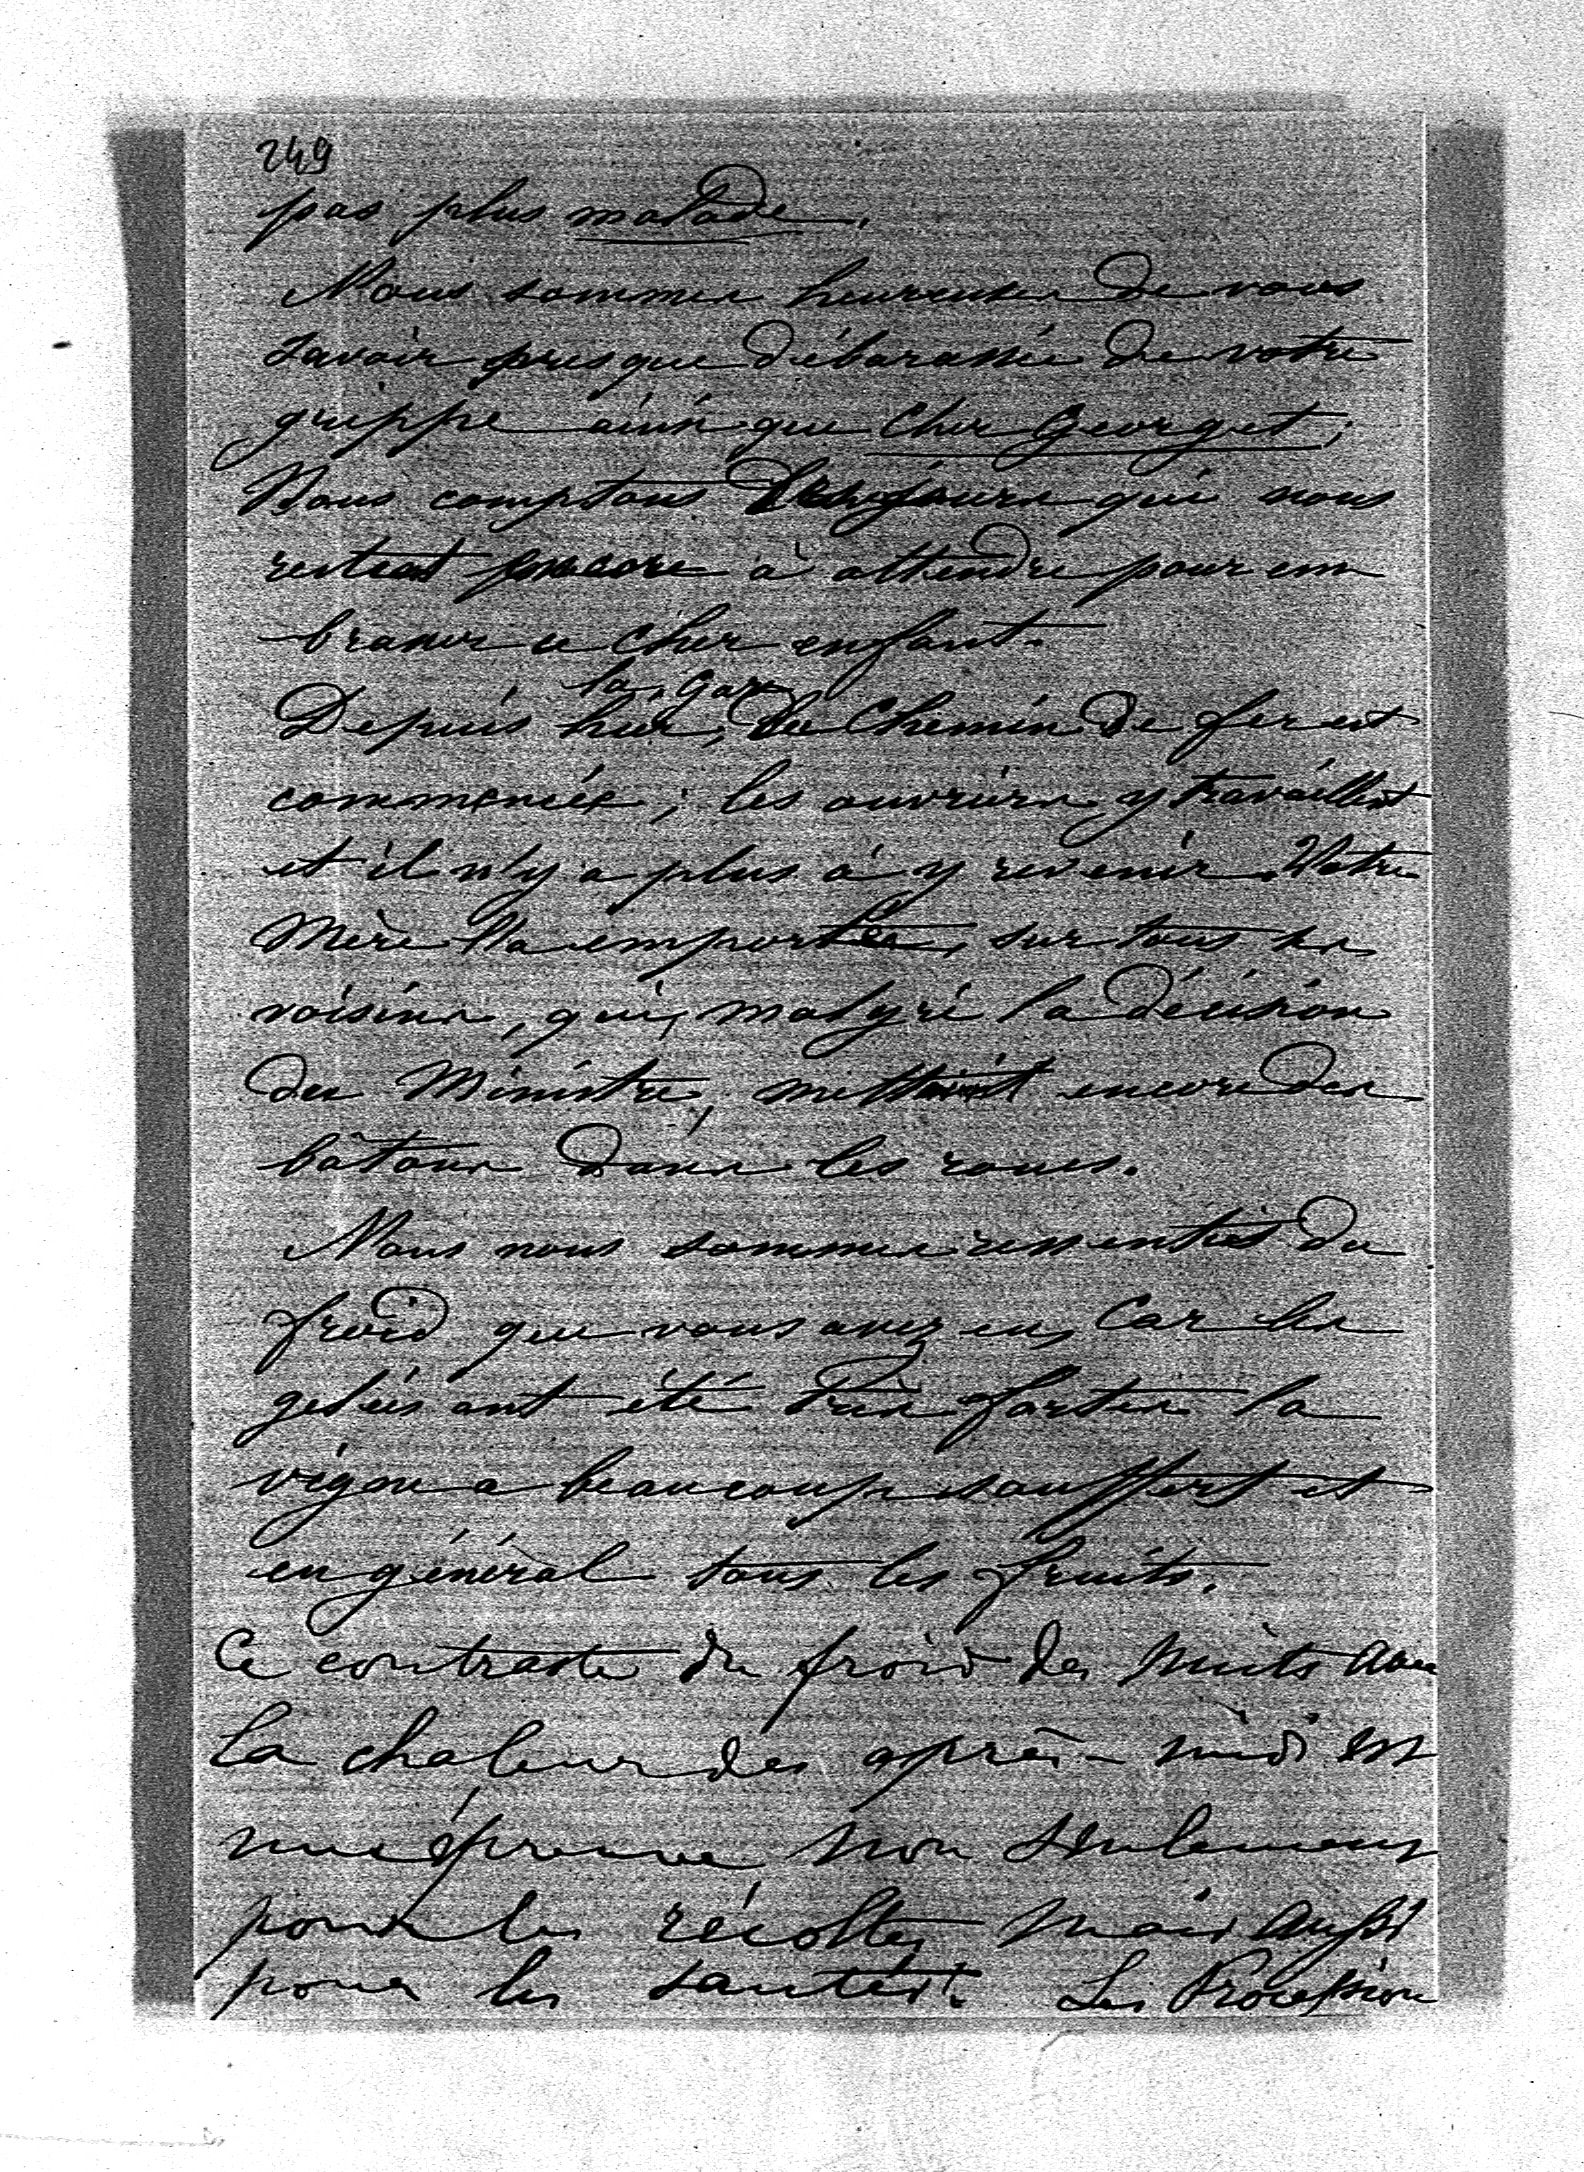 249
pas plus malade.
Nous sommes heureuses de vous
savoir presque débarassée de votre
grippe ainsi que Cher Georget;
Nous comptons les jours qui nous
restent encore à attendre pour em
brasser ce cher enfant.
la gare
Depuis hier, du Chemin de fer est
commencée; les ouvriers y travaillent
et il n'y a plus à y revenir. Votre
Mère l'a emporté, sur tous ses
voisins, qui, malgré la décision
du Ministre, mettaient encore des
bâtons dans les roues.
Nous nous sommes ressenties du
froid que vous avez eu, Car les
gelées ont été très fortes la
vigne a beaucoup souffert et
en général tous les fruits.
Ce contraste du froid des nuits avec
la chaleur des après-midi est
une épreuve non seulement
pour les récoltes mais aussi
pour les santés. Les Procession